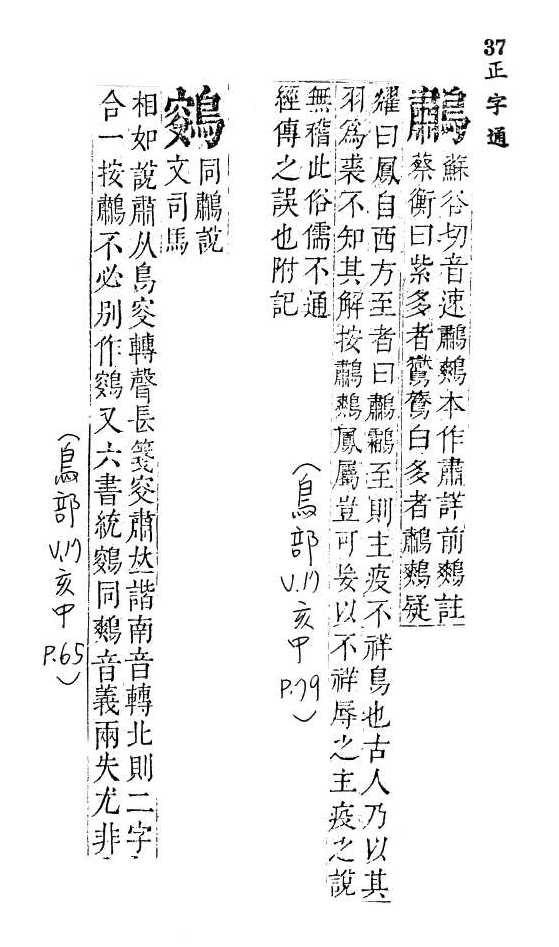 37 正字通
鷫
蘇谷切音速鷫鷞本作肅詳前鷞註
蔡衡曰紫多者鸑鷟白多者鷫鷞疑
曰鳳自西方至者曰鷫鸘至則主疫不祥鳥也古人乃以其
羽爲裘不知其解按鷫鷞鳳屬豈可妄以不祥辱之主疫之說
無稽此俗儒不通
經傳之誤也附記
(鳥部 V.17 亥甲 P.79)
同鷫說
文司馬
相如說肅从鳥叜轉聲長箋叜肅𠀤諧南音轉北則二字
合一按鷫不必別作又六書統同鷞音義兩失尤非
(鳥部 V.17 亥甲 P.65)